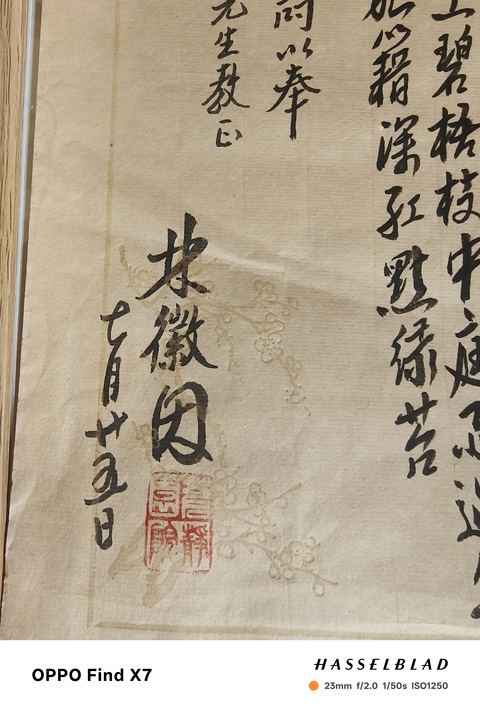 上碧梧枝中庭
籍深紅點綠苔
問以奉
先生教正
林徽因
七月廿五日
OPPO Find X7
HASSELBLAD
23mm f/2.0 1/50s ISO1250